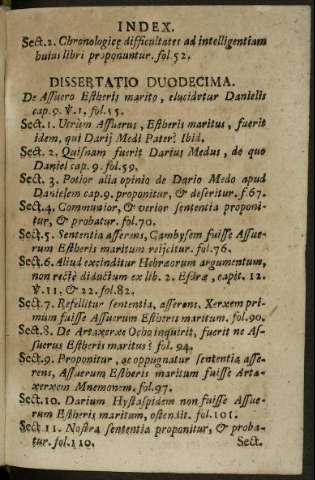 INDEX.
Sect.2. Chronologicę difficultates ad intelligentiam
huius libri proponuntur. fol.52.
DISSERTATIO DUODECIMA.
De Assuero Estheris marito, elucidetur Danielis
cap.9. ℣.1. fol.55.
Sect.1. Utrum Assuerus, Estheris maritus, fuerit
idem, qui Darij Medi Pater? Ibid.
Sect.2. Quisnam fuerit Darius Medus, de quo
Daniel cap.9. fol.59.
Sect.3. Potior alia opinio de Dario Medo apud
Danielem cap.9. proponitur, & deseritur. f.67.
Sect.4. Communior, & verior sententia proponi-
tur, & probatur. fol.70.
Sect.5. Sententia asserens, Cambysem fuisse Assue-
rum Estheris maritum reijcitur. fol.76.
Sect.6. Aliud excinditur Hebræorum argumentum,
non rectè diductum ex lib. 2. Esdræ, capit. 12.
℣.11. & 22. fol.82.
Sect.7. Refellitur sententia, asserens, Xerxem pri-
mum fuisse Assuerum Estheris maritum. fol.90.
Sect.8. De Artaxerxe Ocho inquirit, fuerit ne As-
suerus Estheris maritus? fol. 94.
Sect.9. Proponitur, ac oppugnatur sententia asse-
rens, Assuerum Estheris maritum fuisse Arta-
xerxem Mnemonem. fol.97.
Sect.10. Darium Hystaspidem non fuisse Assue-
rum Estheris maritum, ostendit. fol.101.
Sect.11. Nostra sententia proponitur, & proba-
tur. fol.110.
Sect.